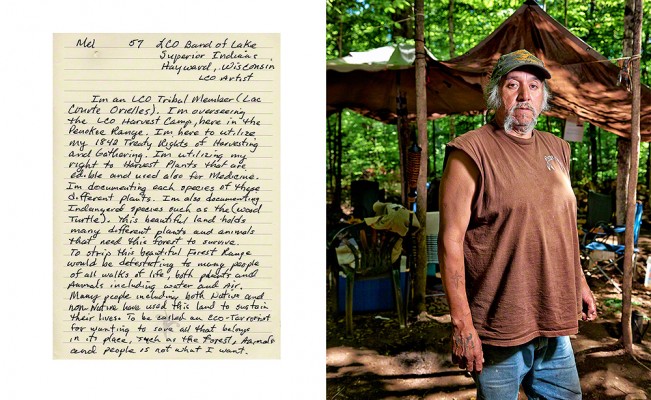 Mel 57 LCO Band of Lake
Superior Indians
Hayward, Wisconsin
LCO Artist
I'm an LCO Tribal Member (Lac
Courte Orielles). I'm overseeing
the LCO Harvest Camp, here in the
Penokee Range. I'm here to utilize
my 1842 Treaty Rights of Harvesting
and Gathering. I'm utilizing my
right to Harvest Plants that are
edible and used also for Medicine.
I'm documenting each species of these
different plants. I'm also documenting
Indangered species such as the (wood
Turtle). This beautiful land holds
many different plants and animals
that need this forest to survive.
To strip this beautiful Forest Range
would be defestating to many people
of all walks of life, both plants and
Animals including water and Air.
Many people including both Native and
non Native have used this land to sustain
their lives. To be called an Eco-Terrorist
for wanting to save all that belongs
in its place, such as the Forest, Animals
and people is not what I want.